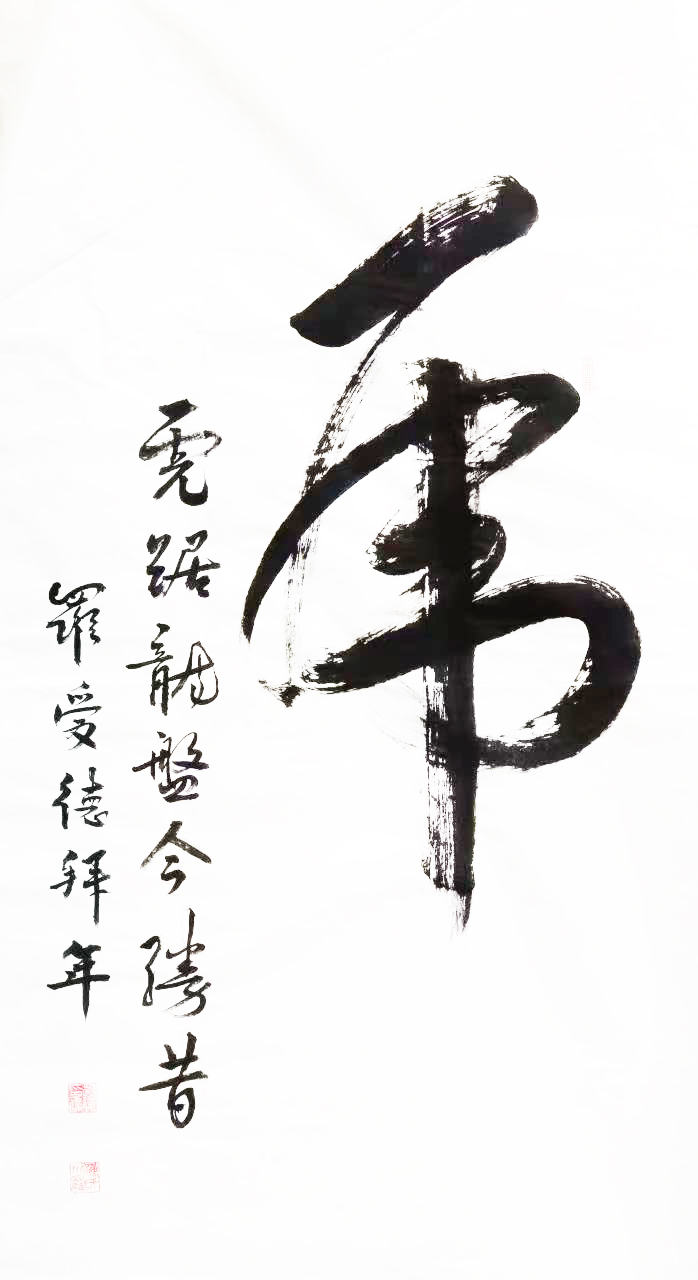 虎
虎踞龍盤今勝昔
羅受德拜年